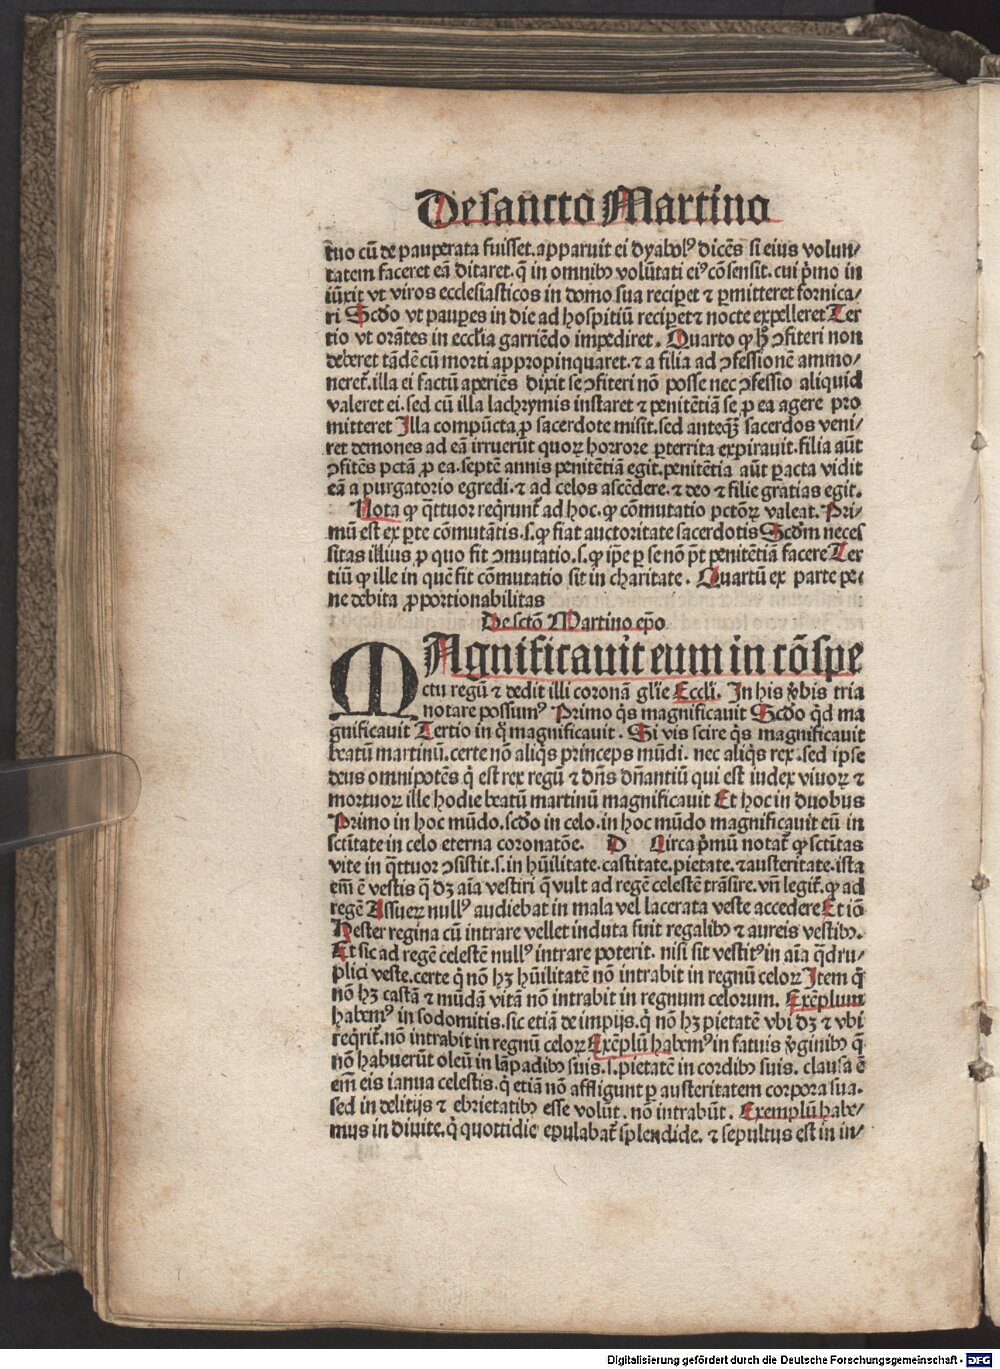 De sancto Martino
tuo cū de pauperata fuisset. apparuit ei dyabolꝰ dicēs si eius volun/
tatem faceret eā ditaret. q̄ in omnibꝫ volūtati eiꝰ cōsensit. cui p̄mo in
iūxit vt viros ecclesiasticos in domo sua reciꝑet ⁊ ꝑmitteret fornica/
ri Scd̄o vt pauꝑes in die ad hospitiū reciꝑet ⁊ nocte expelleret Ter
tio vt orātes in ecclīa garriēdo impediret. Quarto ꝙ h̄ ꝯfiteri non
deberet tādē cū morti appropinquaret. ⁊ a filia ad ꝯfessionē ammo/
neret᷑. illa ei factū aperiēs dixit se ꝯfiteri nō posse nec ꝯfessio aliquid
valeret ei. sed cū illa lachrymis instaret ⁊ penitētiā se ꝓ ea agere pro
mitteret Illa compūcta ꝓ sacerdote misit. sed anteqꝫ sacerdos veni/
ret demones ad eā irruerūt quoꝝ horrore ꝑterrita expirauit. filia aūt
ꝯfitēs pctā ꝓ ea. septē annis penitētiā egit. penitētia aūt ꝑacta vidit
eā a purgatorio egredi. ⁊ ad celos ascēdere. ⁊ deo ⁊ filie gratias egit.
Nota ꝙ q̄ttuor req̇runt᷑ ad hoc. ꝙ cōmutatio pctōꝝ valeat. Pri/
mū est ex ꝑte cōmutātis. s. ꝙ fiat auctoritate sacerdotis Scd̄m neces
sitas illius ꝓ quo fit ꝯmutatio. s. ꝙ ip̄e ꝑ se nō pt̄ penitētiā facere Ter
tiū ꝙ ille in quē fit cōmutatio sit in charitate. Quartū ex parte pe/
ne debita ꝓportionabilitas
De sctō Martino ep̄o
MAgnificauit eum in cōspe
ctu regū ⁊ dedit illi coronā gl̄ie Eccl̄i. In his v̄bis tria
notare possumꝰ Primo q̇s magnificauit Scd̄o q̇d ma
gnificauit Tertio in q̇ magnificauit. Si vis scire q̇s magnificauit
beatū martinū. certe nō aliq̇s princeps mūdi. nec aliq̇s rex. sed ipse
deus omnipotēs q̇ est rex regū ⁊ dn̄s dn̄antiū qui est iudex viuoꝝ ⁊
mortuoꝝ ille hodie beatū martinū magnificauit Et hoc in duobus
Primo in hoc mūdo. scd̄o in celo. in hoc mūdo magnificauit eū in
sctītate in celo eterna coronatōe. D Circa p̄mū notat᷑ ꝙ sctītas
vite in q̄ttuor ꝯsistit. s. in hūilitate. castitate. pietate. ⁊ austeritate. ista
em̄ ē vestis q̄ dꝫ aīa vestiri q̇ vult ad regē celestē trāsire. vn̄ legit᷑. ꝙ ad
regē Assueꝝ nullꝰ audiebat in mala vel lacerata veste accedere Et iō
Hester regina cū intrare vellet induta fuit regalibꝫ ⁊ aureis vestibꝫ.
Et sic ad regē celestē nullꝰ intrare poterit. nisi sit vestitꝰ in aīa q̄dru/
plici veste. certe q̇ nō hꝫ hūilitatē nō intrabit in regnū celoꝝ Item q̇
nō hꝫ castā ⁊ mūdā vitā nō intrabit in regnum celorum. Exēplum
habemꝰ in sodomitis. sic etiā de impijs. q̇ nō hꝫ pietatē vbi dꝫ ⁊ vbi
req̇rit᷑. nō intrabit in regnū celoꝝ Exēplū habemꝰ in fatuis v̇ginibꝫ q̄
nō habuerūt oleū in lāpadibꝫ suis. s. pietatē in cordibꝫ suis. clausa ē
em̄ eis ianua celestis. q̇ etiā nō affligunt ꝑ austeritatem corpora sua.
sed in delitijs ⁊ ebrietatibꝫ esse volūt. nō intrabūt. Exemplū habe/
mus in diuite. q̇ quottidie epulabat᷑ splendide. ⁊ sepultus est in in/
Digitalisierung gefördert durch die Deutsche Forschungsgemeinschaft - DFG